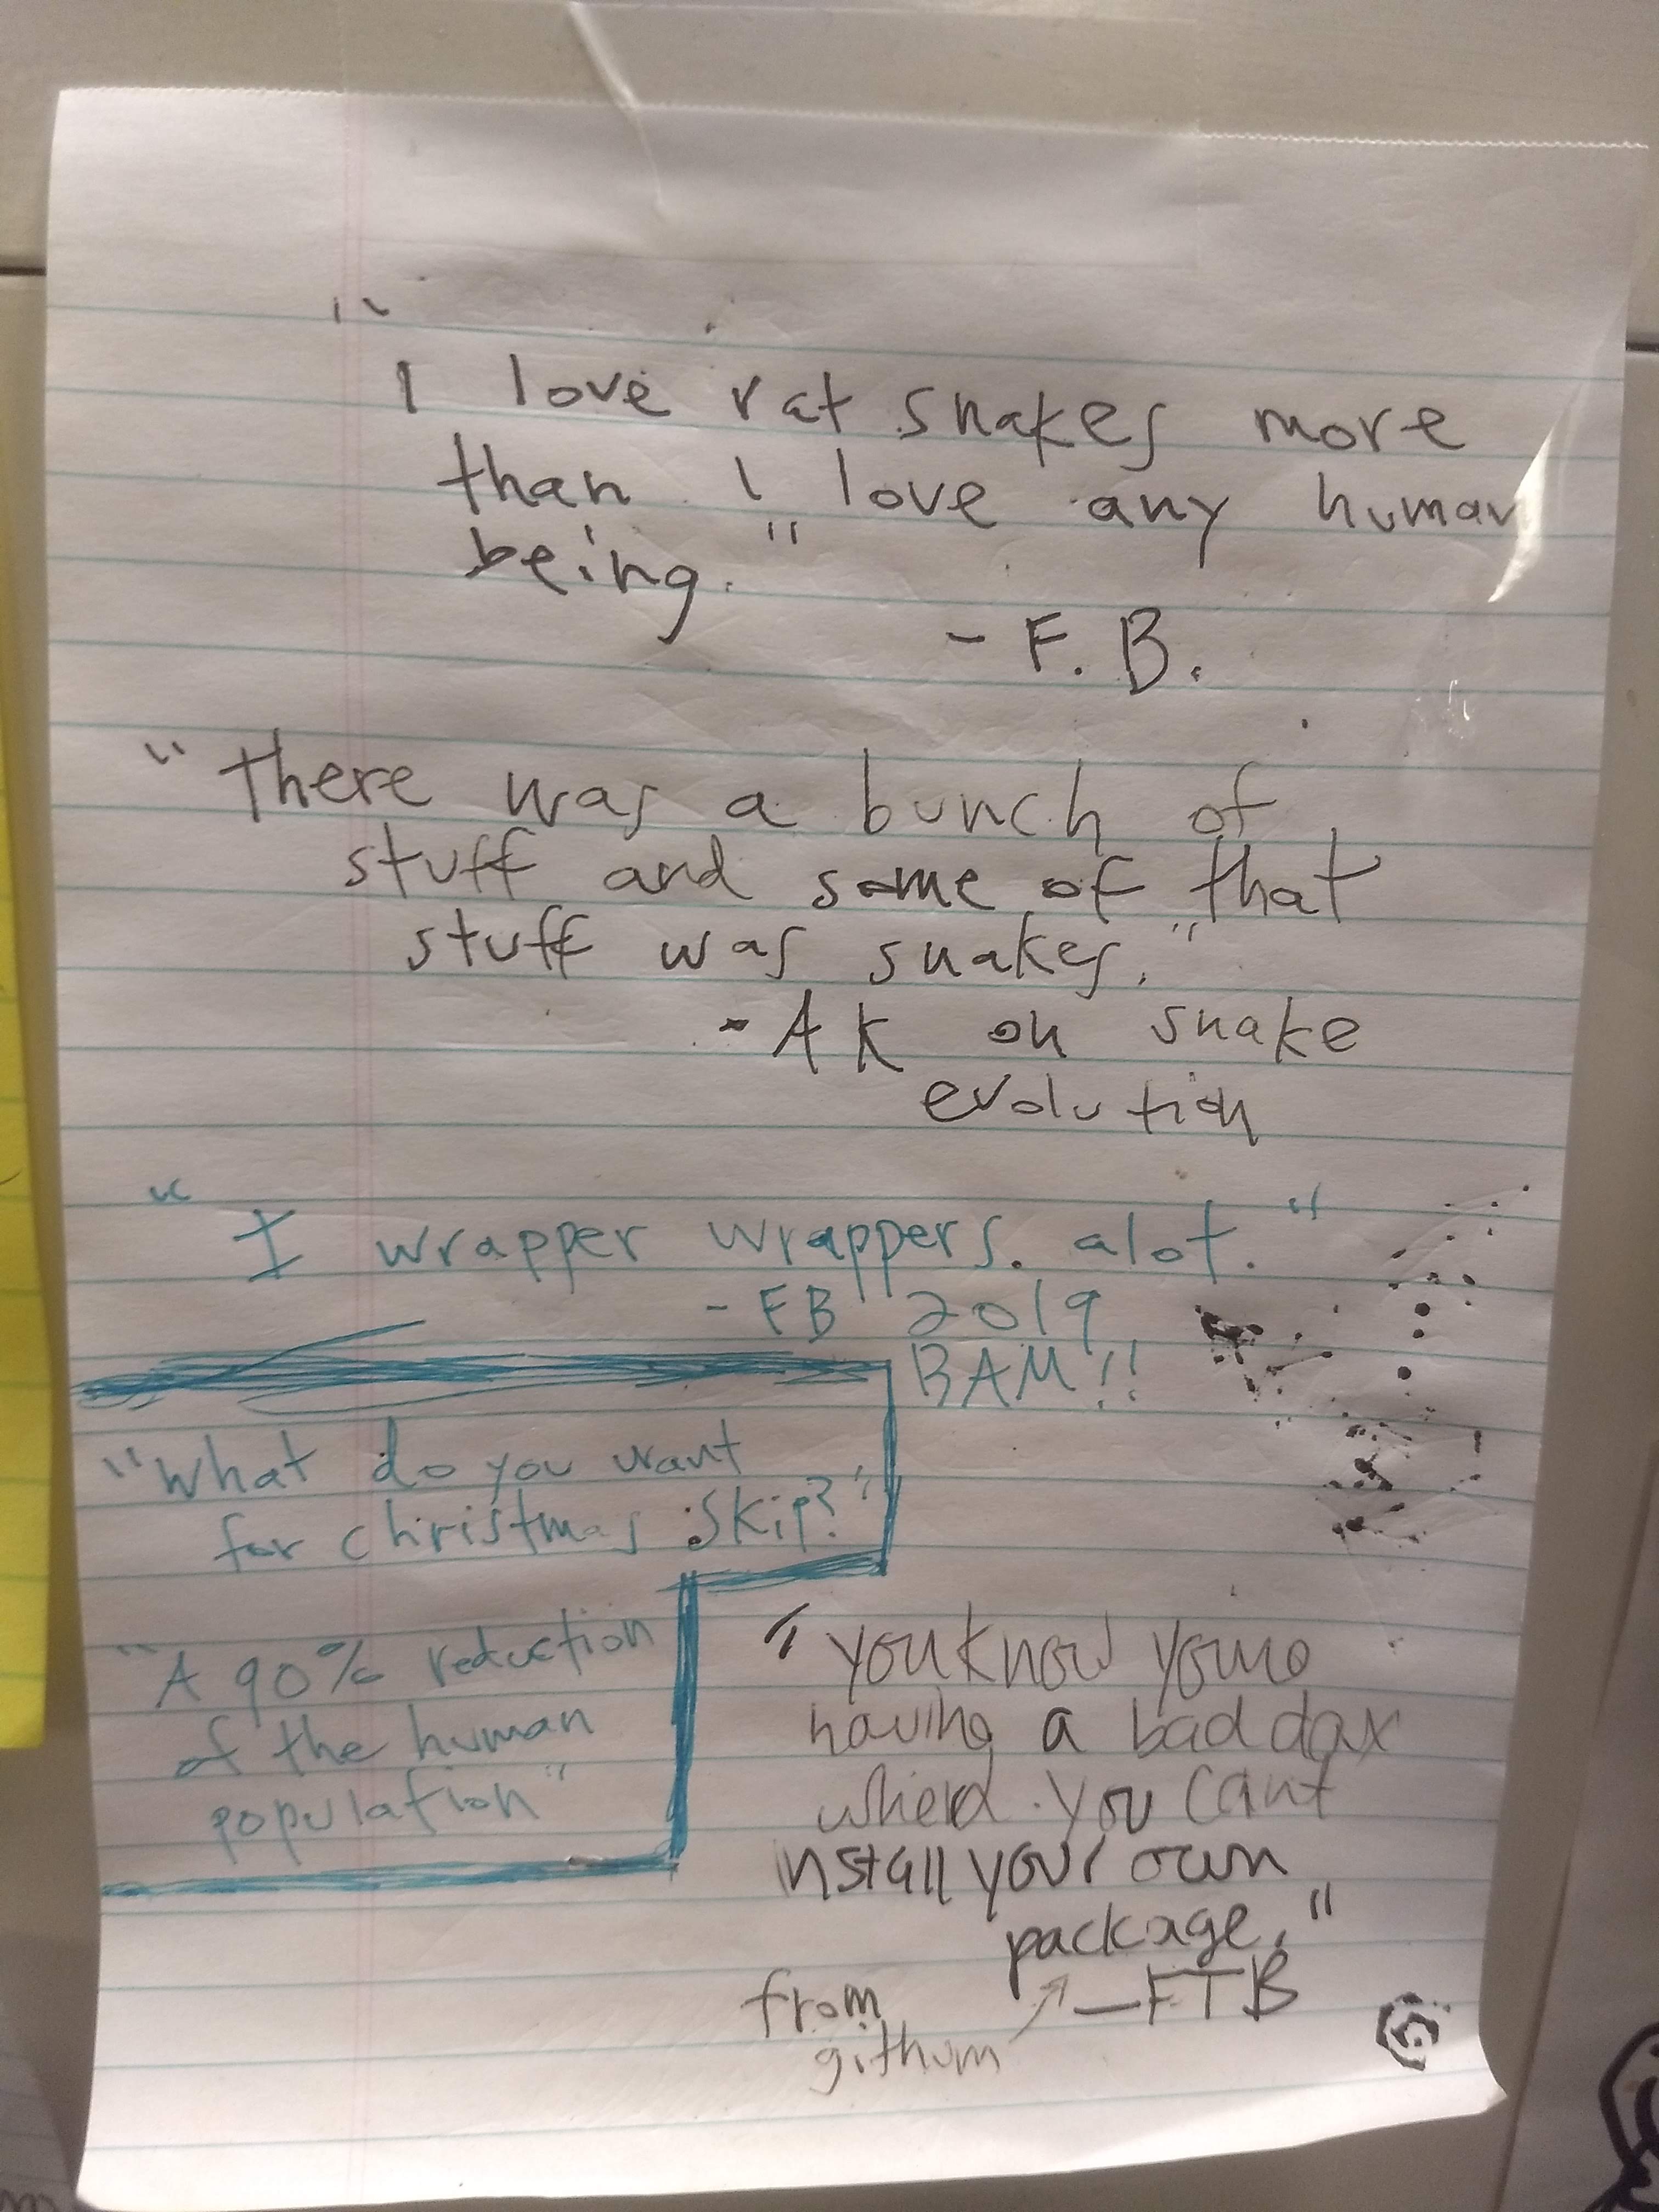 "I love rat snakes more
than I love any human
being."
- F. B.
"there was a bunch of
stuff and some of that
stuff was snakes."
- AK on snake
evolution
"I wrapper wrappers. alot."
- FB 2019
BAM!!
"What do you want
for christmas Skip?"
"A 90% reduction
of the human
population"
"you know youre
having a bad day
when you cant
install your own
package."
—FTB
from
githum